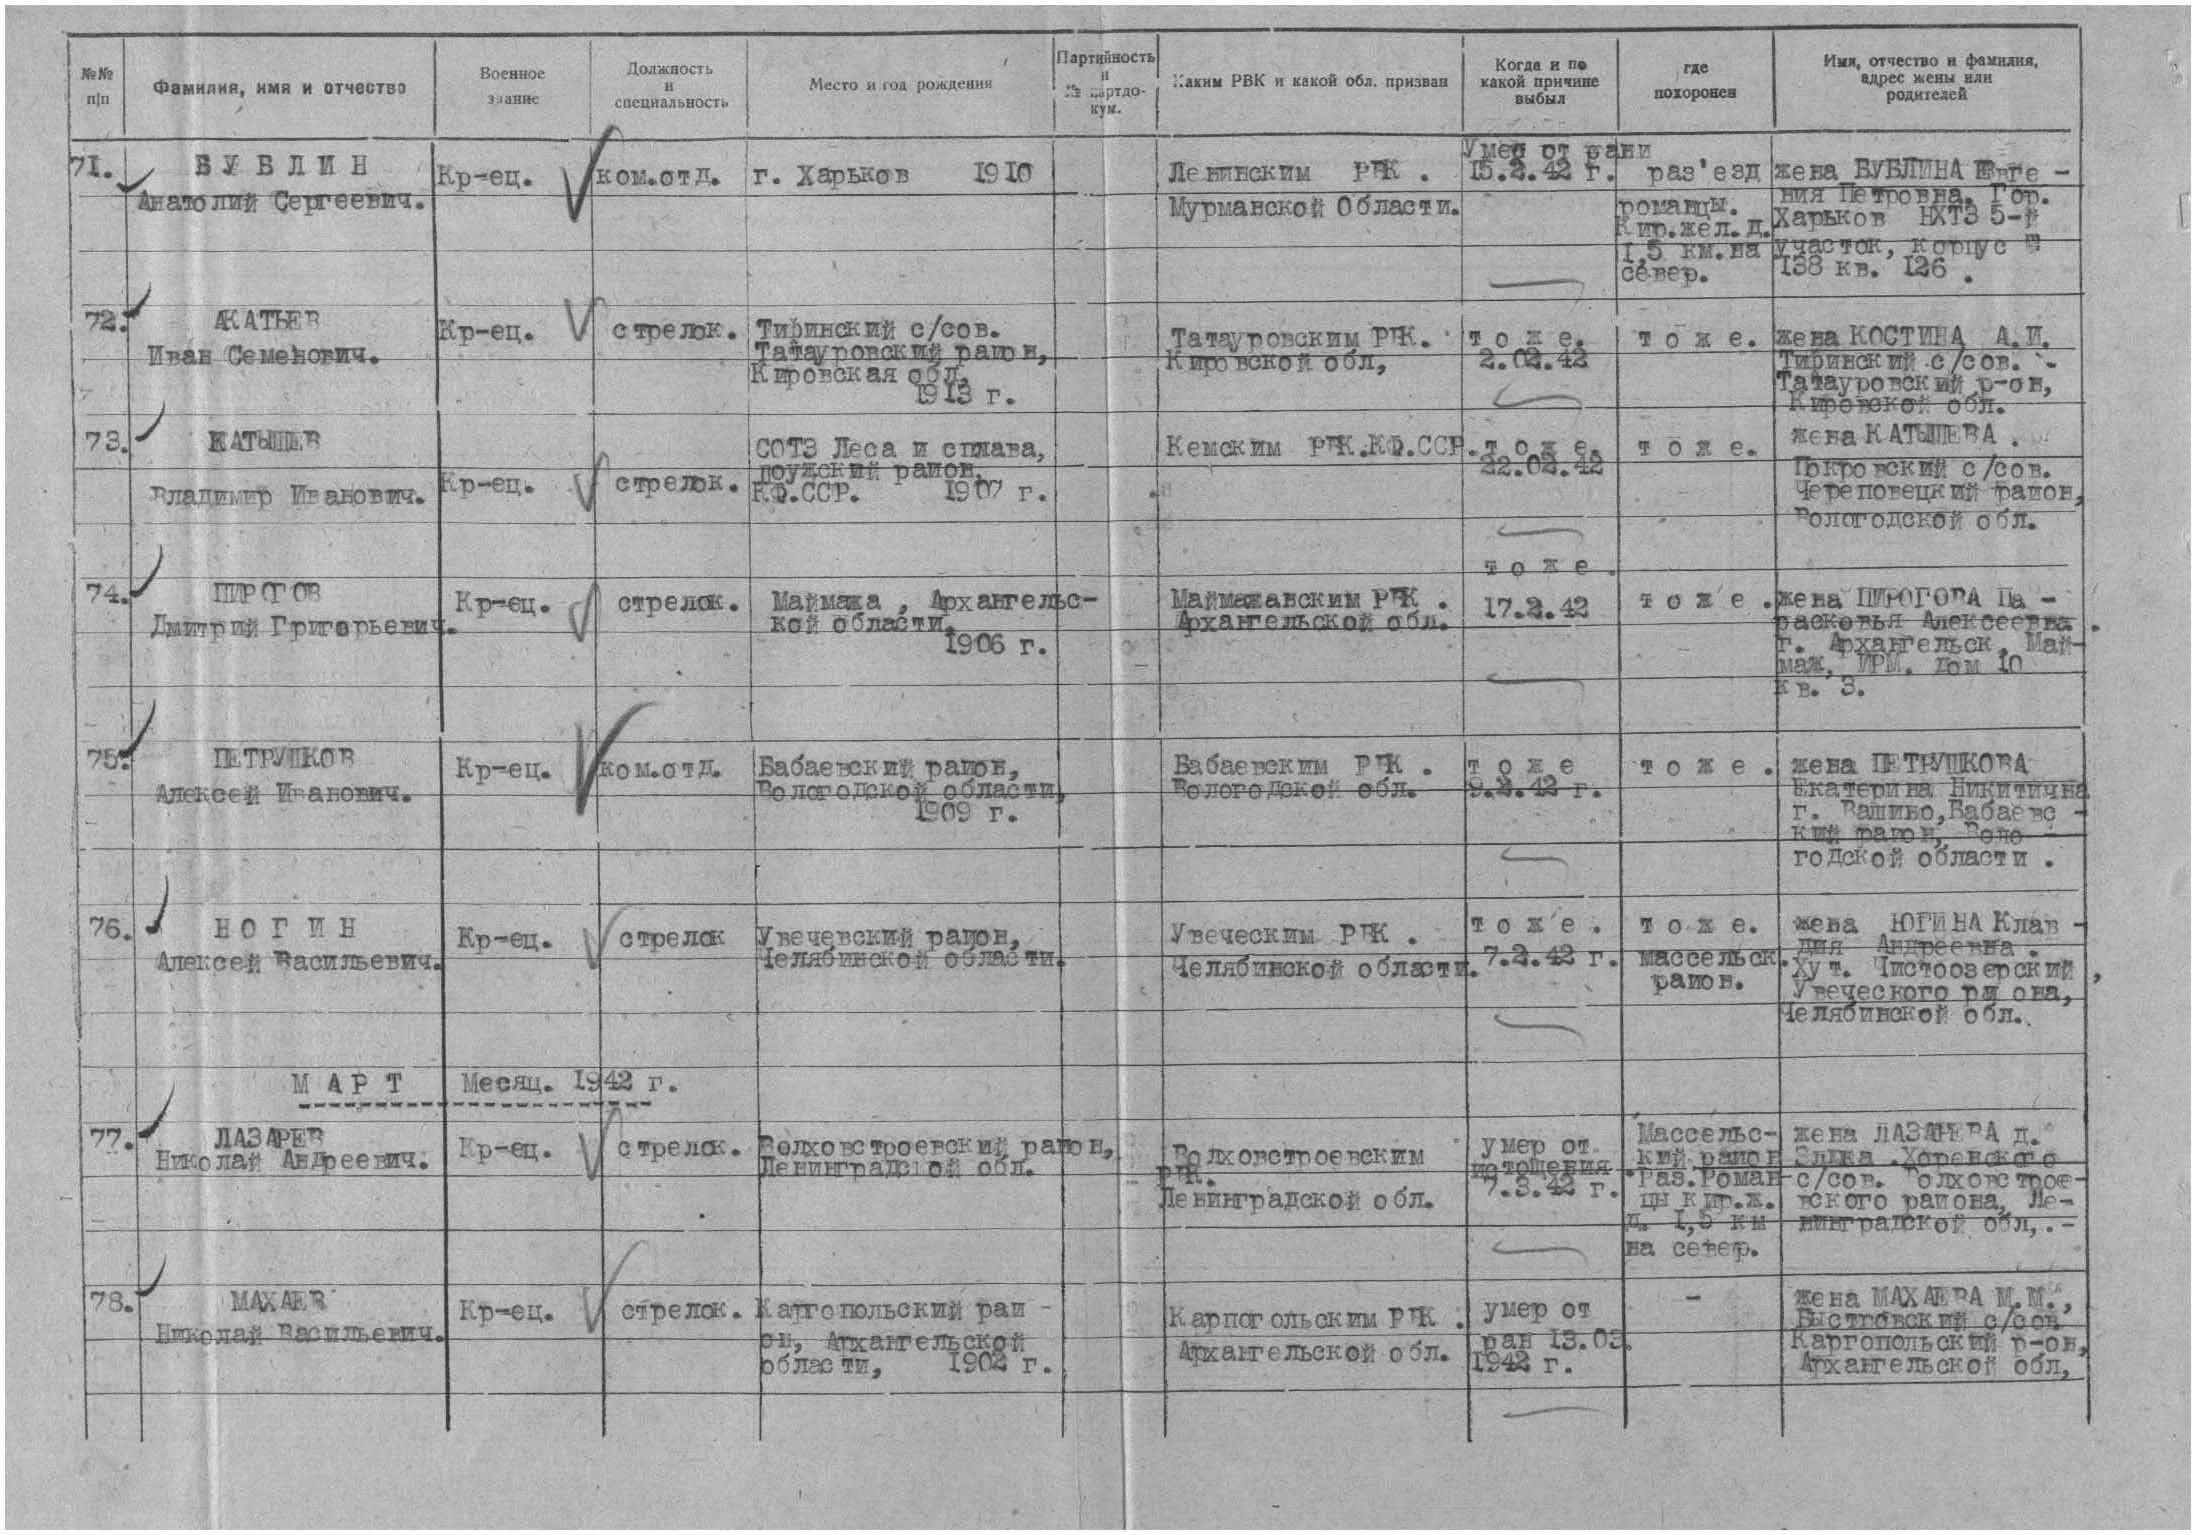 №№ п/п
Фамилия, имя и отчество
Военное звание
Должность и специальность
Место и год рождения
Партийность и № партдокум.
Каким РВК и какой обл. призван
Когда и по какой причине выбыл
где похоронен
Имя, отчество и фамилия, адрес жены или родителей
71.
БУБЛИН
Анатолий Сергеевич.
Кр-ец.
ком.отд.
г. Харьков 1910
Ленинским РВК .
Мурманской Области.
Умер от рани
15.2.42 г.
раз'езд
романцы.
Кир.жел.д.
1,5 км.на
север.
жена БУБЛИНА Евге -
ния Петровна. Гор.
Харьков НХТЗ 5-й
участок, корпус
138 кв. 126 .
72.
АКАТЬЕВ
Иван Семенович.
Кр-ец.
стрелок.
Тиринский с/сов.
Татауровский район,
Кировская обл,
1913 г.
Татауровским РВК.
Кировской обл,
тоже.
2.02.42
тоже.
жена КОСТИНА А.И.
Тиринский с/сов. -
Татауровский р-он,
Кировской обл.
73.
КАТЫШЕВ
Владимир Иванович.
Кр-ец.
стрелок.
СОТЗ Леса и сплава,
поужский район,
КФ.ССР. 1907 г.
Кемским РВК.КФ.ССР.
тоже.
22.02.42
тоже.
жена КАТЫШЕВА .
Покровский с/сов.
Череповецкий район,
Вологодской обл.
74.
ПИРОГОВ
Дмитрий Григорьевич.
Кр-ец.
стрелок.
Маймажа , Архангельс-
кой области.
1906 г.
Маймажанским РВК .
Архангельской обл.
тоже .
17.2.42
тоже .
жена ПИРОГОВА Па -
расковья Алексеевна .
г. Архангельск, Май-
маж, ИРМ. дом 10
кв. 3.
75.
ПЕТРУШКОВ
Алексей Иванович.
Кр-ец.
ком.отд.
Бабаевский район,
Вологодской области,
1909 г.
Бабаевским РВК .
Вологодской обл.
тоже
9.2.42 г.
тоже .
жена ПЕТРУШКОВА
Екатерина Никитична
г. Вашино,Бабаевс -
кий район, Воло -
годской области .
76.
НОГИН
Алексей Васильевич.
Кр-ец.
стрелок
Увечевский район,
Челябинской области.
Увеческим РВК .
Челябинской области.
тоже .
7.2.42 г.
тоже.
массельск.
район.
жена ЮГИНА Клав -
дия Андреевна .
Хут. Чистоозерский ,
Увеческого ра она,
Челябинской обл.
МАРТ Месяц. 1942 г.
77.
ЛАЗАРЕВ
Николай Андреевич.
Кр-ец.
стрелок.
Волховстроевский район,
Ленинградской обл.
Волховстроевским
РВК.
Ленинградской обл.
умер от
истощения
7.3.42 г.
Массельс-
кий район
Раз.Роман
цы Кир.ж.
д. 1,5 км
на север.
жена ЛАЗАРЕВА д.
Элька .Хоренского
с/сов. Волховстрое-
вского района, Ле-
нинградской обл,.-
78.
МАХАЕВ
Николай Васильевич.
Кр-ец.
стрелок.
Каргопольский рай -
он, Архангельской
области, 1902 г.
Карпогольским РВК .
Архангельской обл.
умер от
ран 13.03.
1942 г.
-
жена МАХАЕВА М.М.,
Быстровский с/сов
Каргопольский р-он,
Архангельской обл,